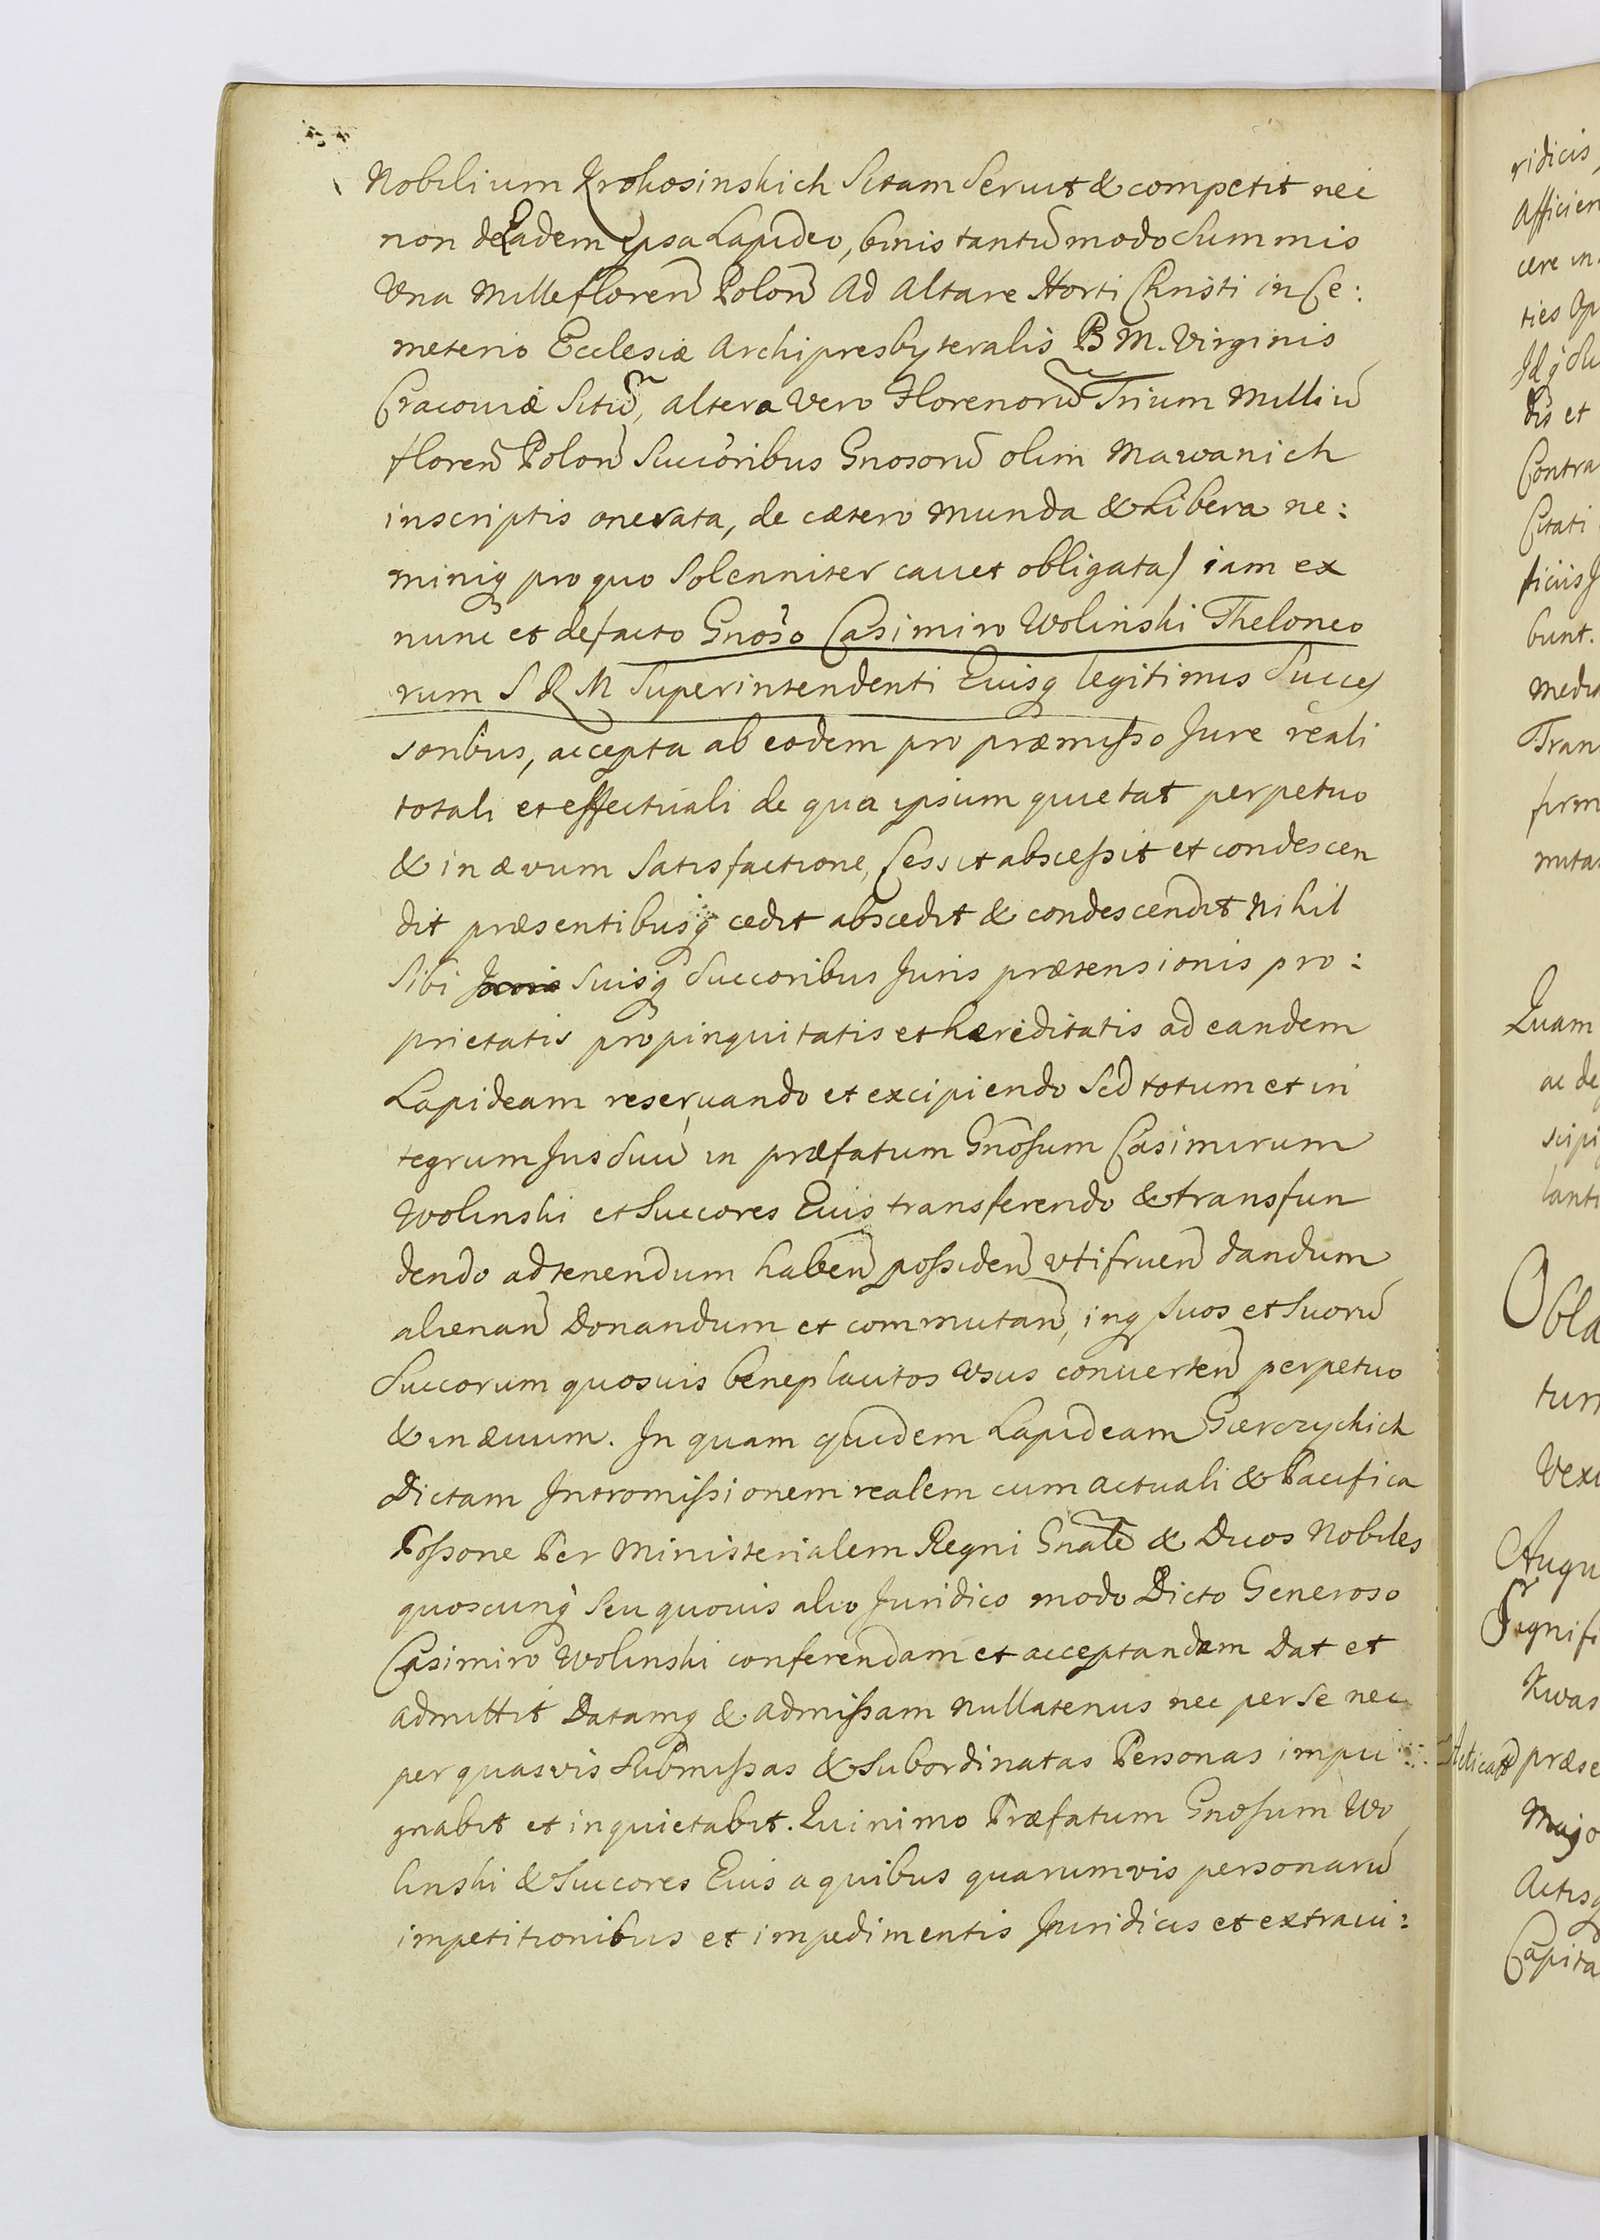 Nobilium Krokosinskich Sitam Servit & competit nec
non de Eadem ipsa Lapideo, binis tantũmodo Summis
Una Mille floren Polon Ad Altare Horti Christi in Ce:
meterio Ecclesiæ Archipresbyteralis B M. Virginis
Cracoviæ Sitũ, altera vero Florenorũ Trium Milliũ
floren Polon Succoribus Gnosorũ olim Mawanich
inscriptis onerata, de cætero munda & Libera ne:
miniq pro quo Solenniter cavet obligata) iam ex
nunc et defacto Gnoso Casimiro Wolinski Theloneo
rum S R M Superintendenti Eiusq legitimis Succes
soribus, accepta ab eodem pro præmisso Jure reali
totali et effectuali de qua ipsum quietat perpetuo
& in ævum Satisfactione, Cessit abscessit et condescen
dit præsentibusq cedit abscedit & condescendit Nihil
Sibi Suisq Succoribus Juris prætensionis pro:
prietatis propinquitatis et hæreditatis ad eandem
Lapideam reservando et excipiendo Sed totum et in
tegrum Jus Suũ in præfatum Gnosum Casimirum
Wolinski et Succores Eius transferendo & transfun
dendo ad tenendum haben possiden utifruen dandum
alienan Donandum et commutan, inq Suos et Suorũ
Succorum quosvis beneplacitos Usus converten perpetuo
& in ævum. In quam quidem Lapideam Gierczychich
Dictam Intromissionem realem cum actuali & Pacifica
Possone Per Ministerialem Regni Gnale & Duos Nobiles
quoscunq Seu quovis alio Juridico modo Dicto Generoso
Casimiro Wolinski conferendam et acceptandam Dat et
admittit Datamq & admissam Nullatenus nec per Se nec
per quasvis Submissas & Subordinatas Personas impu
gnabit et inquietabit. Quinimo Præfatum Gnosum Wo
linski & Succores Eius a quibus quarumvis personarũ
impetitionibus et impedimentis Juridicis et extraiu:
ridicis,
afficien
cere in
ties
dis et
Contra
Citati
bunt.
Media
Tran
firm
muta
Quam
ac de
scipi
lanti
Obla
tum
Vexi
Augu
Signifi
Kwas
præse
Majo
Actisq
Capita